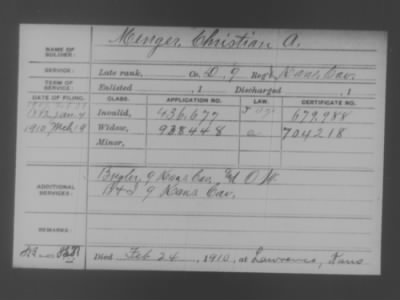 NAME OF SOLDIER: Menger, Christian A.
SERVICE: Late rank, Co. D, 9 Reg't Kans Cav.
TERM OF SERVICE: Enlisted , 1 Discharged , 1
DATE OF FILING. CLASS. APPLICATION NO. LAW. CERTIFICATE NO.
Jan. 4 Invalid, 436,677 679,988
1910, Mch. 19 Widow, 938448 704218
Minor,
ADDITIONAL SERVICES: Bugler, 9 Kans Cav,
9 Kans Cav.
Died Feb 24, 1910, at Lawrence, Kans